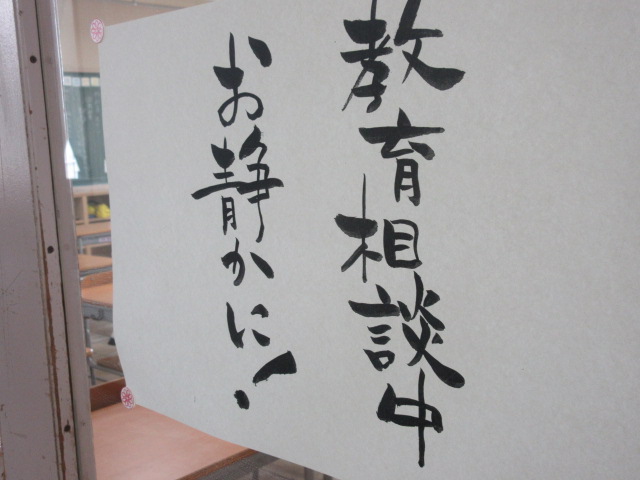 教育相談中
お静かに!